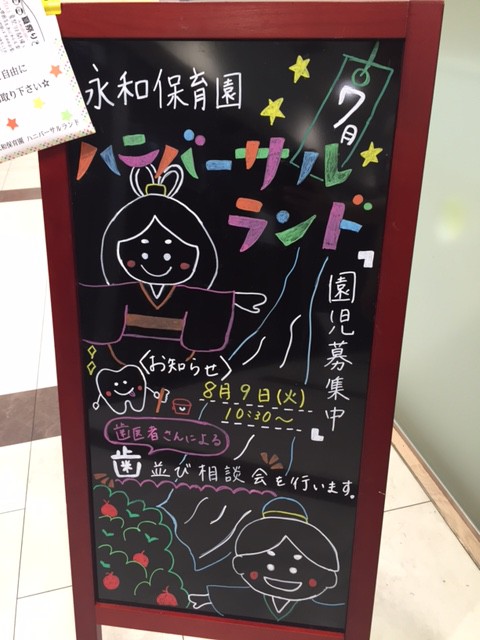 自由に
取り下さい☆
和保育園 ハニバーサルランド
永和保育園
7月
ハニバーサル
ランド
園児募集中
〈お知らせ〉
8月9日(火)
10:30〜
歯医者さんによる
歯並び相談会を行います。